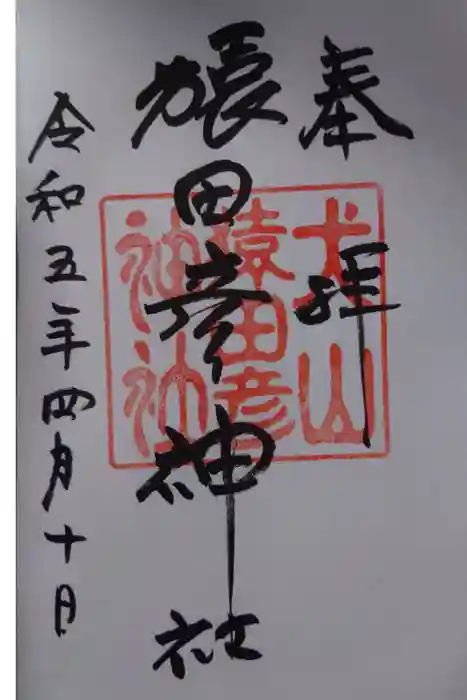 奉拝
猿田彦神社
令和五年四月十日
犬山
猿田彦
神社